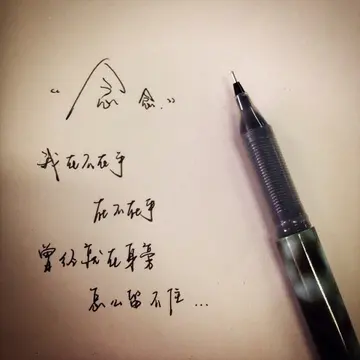 “念 念.”
我在不在乎
在不在乎
曾经就在身旁
怎么留不住...